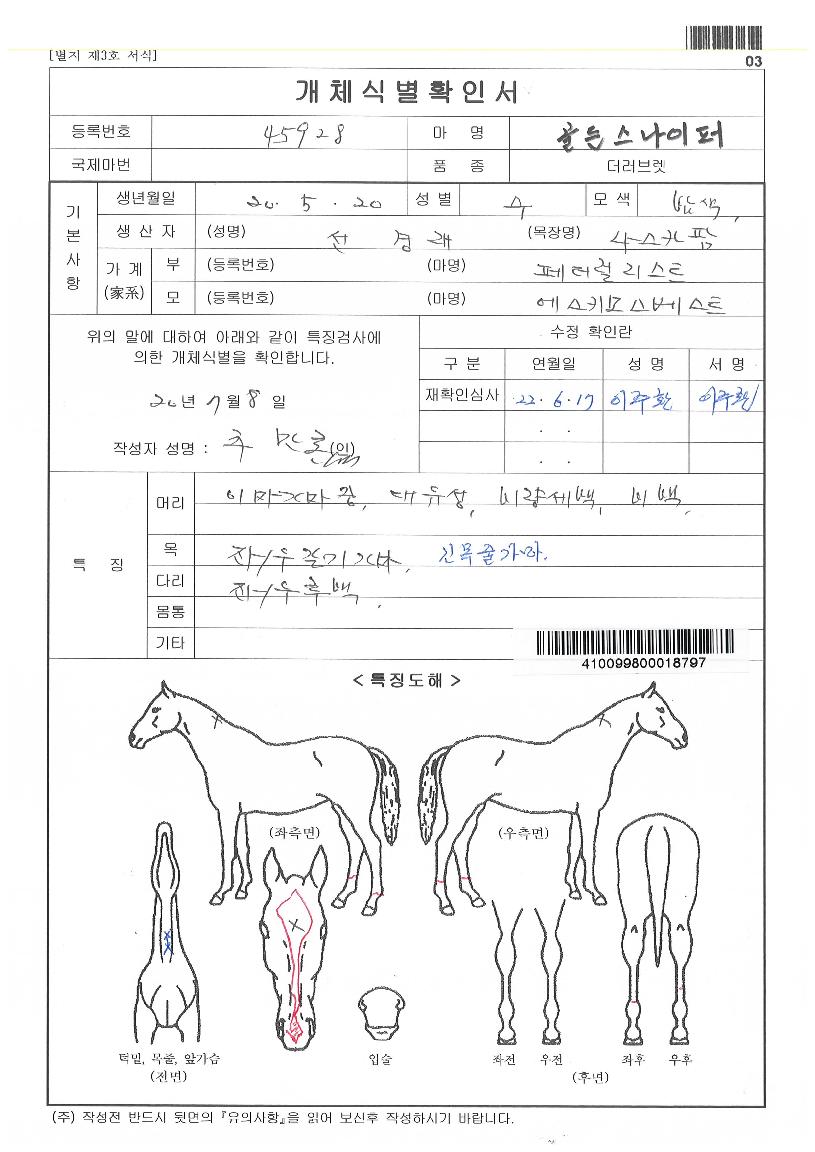 [별지 제3호 서식]
03
개체식별확인서
등록번호 45928 마 명 골든스나이퍼
국제마번 품 종 더러브렛
기본사항
생년월일 20. 5 . 20 성별 수 모색 밤색,
생산자 (성명) 전 경래 (목장명) 사스카팜
가계(家系) 부 (등록번호) (마명) 페더럴리스트
모 (등록번호) (마명) 에스키모스베스트
위의 말에 대하여 아래와 같이 특징검사에
의한 개체식별을 확인합니다.
20년 7월 8일
작성자 성명 : 추 (인)
수정 확인란
구 분 연월일 성 명 서 명
재확인심사 22. 6. 17 이주환 이주환
. .
. .
특 징
머리 이마가마중, 대유성, 비량세백, 비백,
목 좌/우줄기가마, 인목줄가마.
다리 좌/우후백,
몸통
기타
410099800018797
< 특징도해 >
(좌측면) (우측면)
턱밑, 목줄, 앞가슴
(전면)
입술
좌전 우전 좌후 우후
(후면)
(주) 작성전 반드시 뒷면의 『유의사항』을 읽어 보신후 작성하시기 바랍니다.